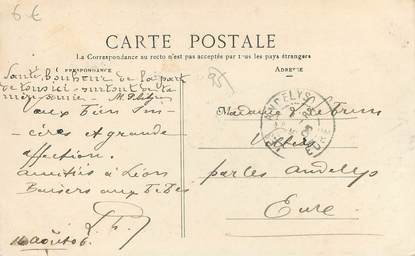 6 €
CARTE POSTALE
La Correspondance au recto n'est pas acceptée par tous les pays étrangers
CORRESPONDANCE
ADRESSE
Santé, bonheur de la part
de tous ici - surtout de ta
95
aux bien sin-
cères et grande
affection.
amitiés à Léon
Baisers aux
Madame
par les Andelys
Eure
LES ANDELYS
EURE
16 août 06.